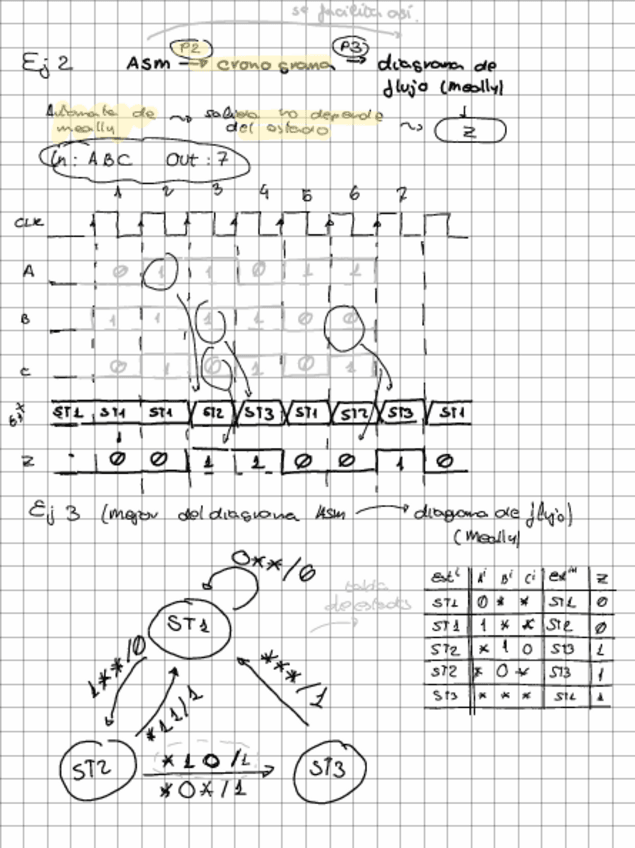 se facilita así.
Ej 2 ASM P2 → crono grama P3 → diagrama de
flujo (meally)
Automata de meally ⤳ salida no depende del estado ⤳ z
In: ABC Out: 7
1 2 3 4 5 6 7
CLK
A 0 1 1 0 1 1
B 1 1 1 1 0 0
C 0 1 0 1 0 1
ST1 ST1 ST1 ST2 ST3 ST1 ST2 ST3 ST1
Z 0 0 1 1 0 0 1 0
Ej 3 (mejor del diagrama ASM → diagrama de flujo)
(meally)
0**/0
ST1
1**/0
*11/1
***/1
ST2
*10/1
*0*/1
ST3
tabla
de estados
est^i A^i B^i C^i est^i+1 Z
ST1 0 * * ST1 0
ST1 1 * * ST2 0
ST2 * 1 0 ST3 1
ST2 * 0 * ST3 1
ST3 * * * ST1 1